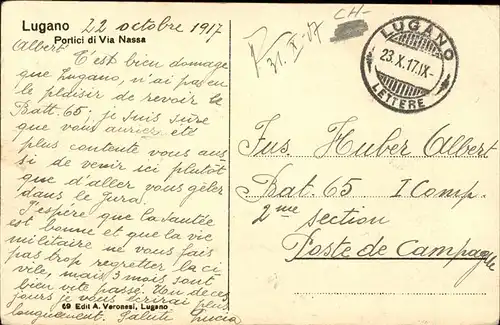 Lugano 22 octobre 1917
Portici di Via Nassa
Albert
C'est bien domage
que Lugano, n'ai pas eu
le plaisir de revoir le
Batt. 65; je suis sûre
que vous auriez été
plus contente vous aus
si de venir ici plutôt
que d'aller vous géler
dans le Jura.
J'espère que la santée
est bonne et que la vie
militaire ne vous fais
pas trop regretter la ci
vele, mais 3 mois sont
bien vite passé. Un de ces
jours je vous écrirai plus
longuement. Saluti Lucia
69 Edit A. Veronesi, Lugano
CH-
31. X. 17
LUGANO
23.X.17.IX-
LETTERE
Fus. Huber Albert
Bat. 65 I Comp.
2me section
Poste de Campagne